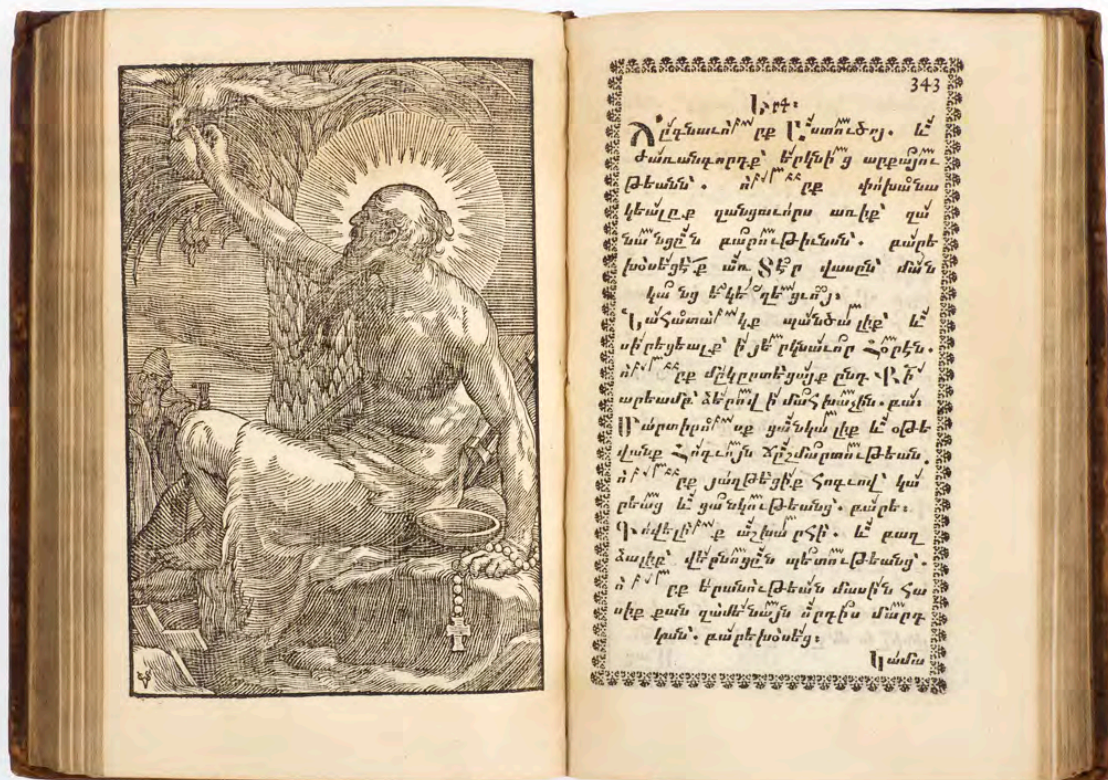 343
Ճըգնաւորք Աստուծոյ. և
ժառանգորդք՝ երկնից արքայու
թեանն՝. որք փոխանա
կեալըք զանցաւորս առիք՝ զա
նանցըն բարութիւնսն՝. բարե
խօսեցէք առ Տէր վասըն՝ ման
կանց եկեղեցւոյ։
Նահատակք պանծալիք՝ և
սիրեցեալք՝ ի յերկնաւոր Հօրէն.
որք մըկըրտեցայք ընդ Քրի
արեամբ՝ ձերով ի մահ խաչին. բա։
Մարտիրոսք ցանկալիք և օթե
վանք Հոգւոյն Ճըշմարտութեան.
որք յաղթեցիք հոգւով՝ կա
րեաց և ցանկութեանց՝. բարե։
Գովելիք աշխարհի՝. և բաղ
ձալիք՝ վերնոցըն պետութեանց՝.
որք երանութեան մասին հա
սիք քան զամենայն որդիս մարդ
կան՝. բարեխօսեց։
Կամա